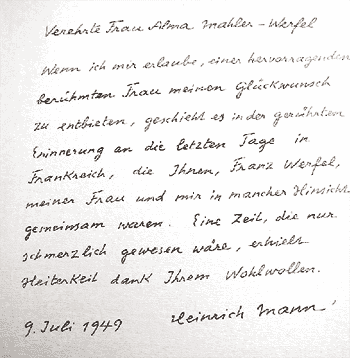 Verehrte Frau Alma Mahler-Werfel
Wenn ich mir erlaube, einer hervorragenden
berühmten Frau meinen Glückwunsch
zu entbieten, geschieht es in der gerührten
Erinnerung an die letzten Tage in
Frankreich, die Ihnen, Franz Werfel,
meiner Frau und mir in mancher Hinsicht
gemeinsam waren. Eine Zeit, die nur
schmerzlich gewesen wäre, erhielt
Heiterkeit dank Ihrem Wohlwollen.
9. Juli 1949 Heinrich Mann